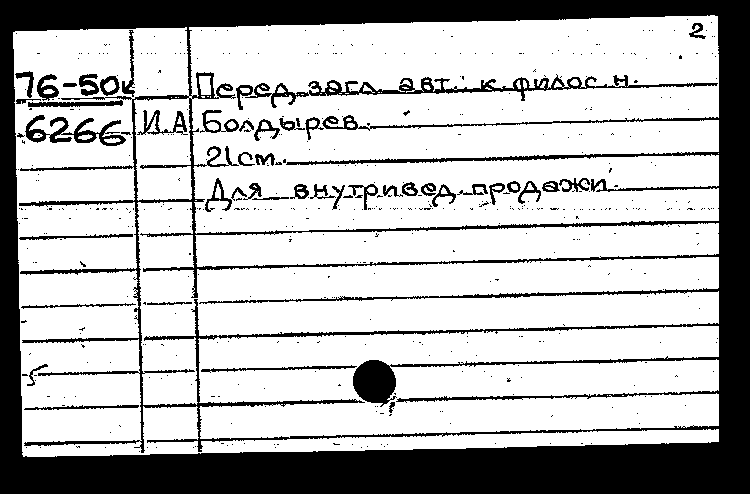 2
76-50к Перед загл. авт.: к. филос. н.
6266 И.А. Болдырев.
21см.
Для внутривед. продажи.
5